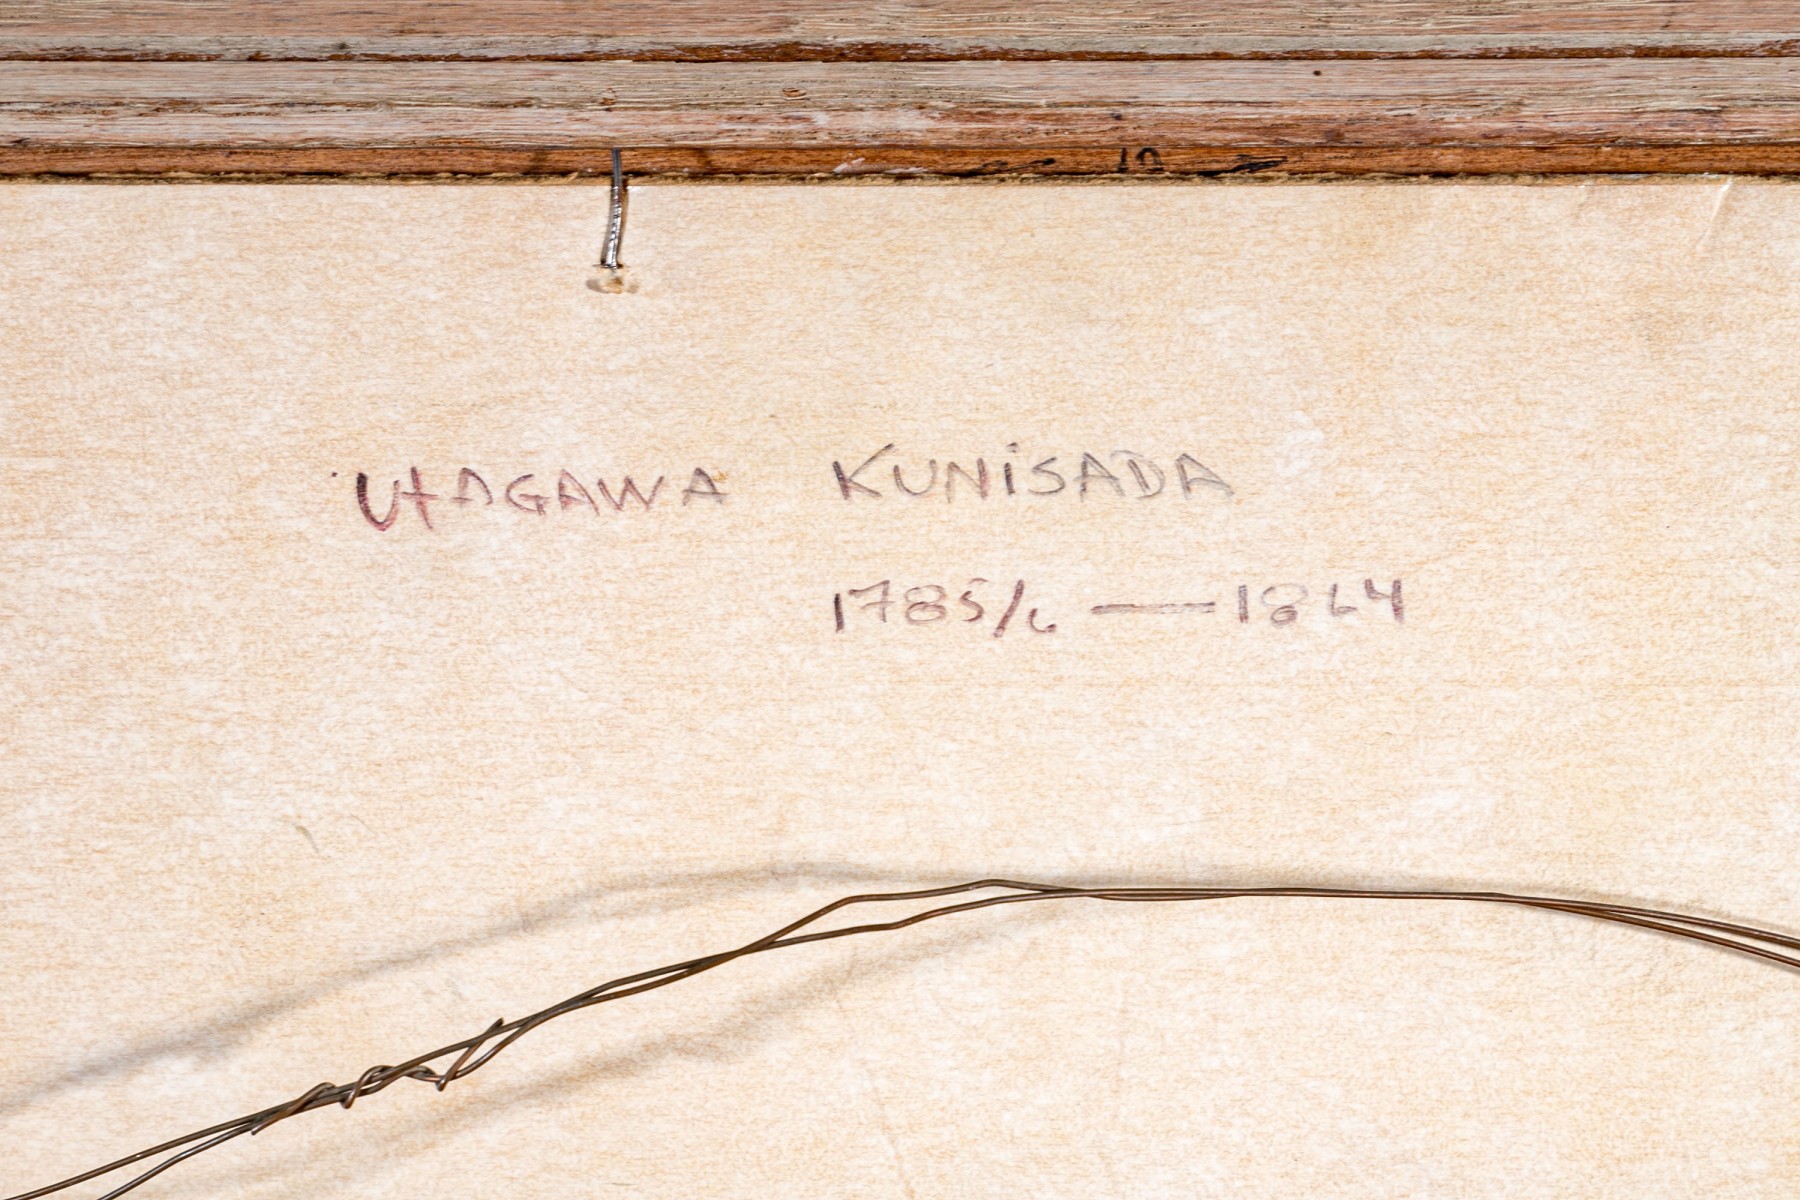 10
UtAGAWA KUNiSADA
1785/6 — 1864